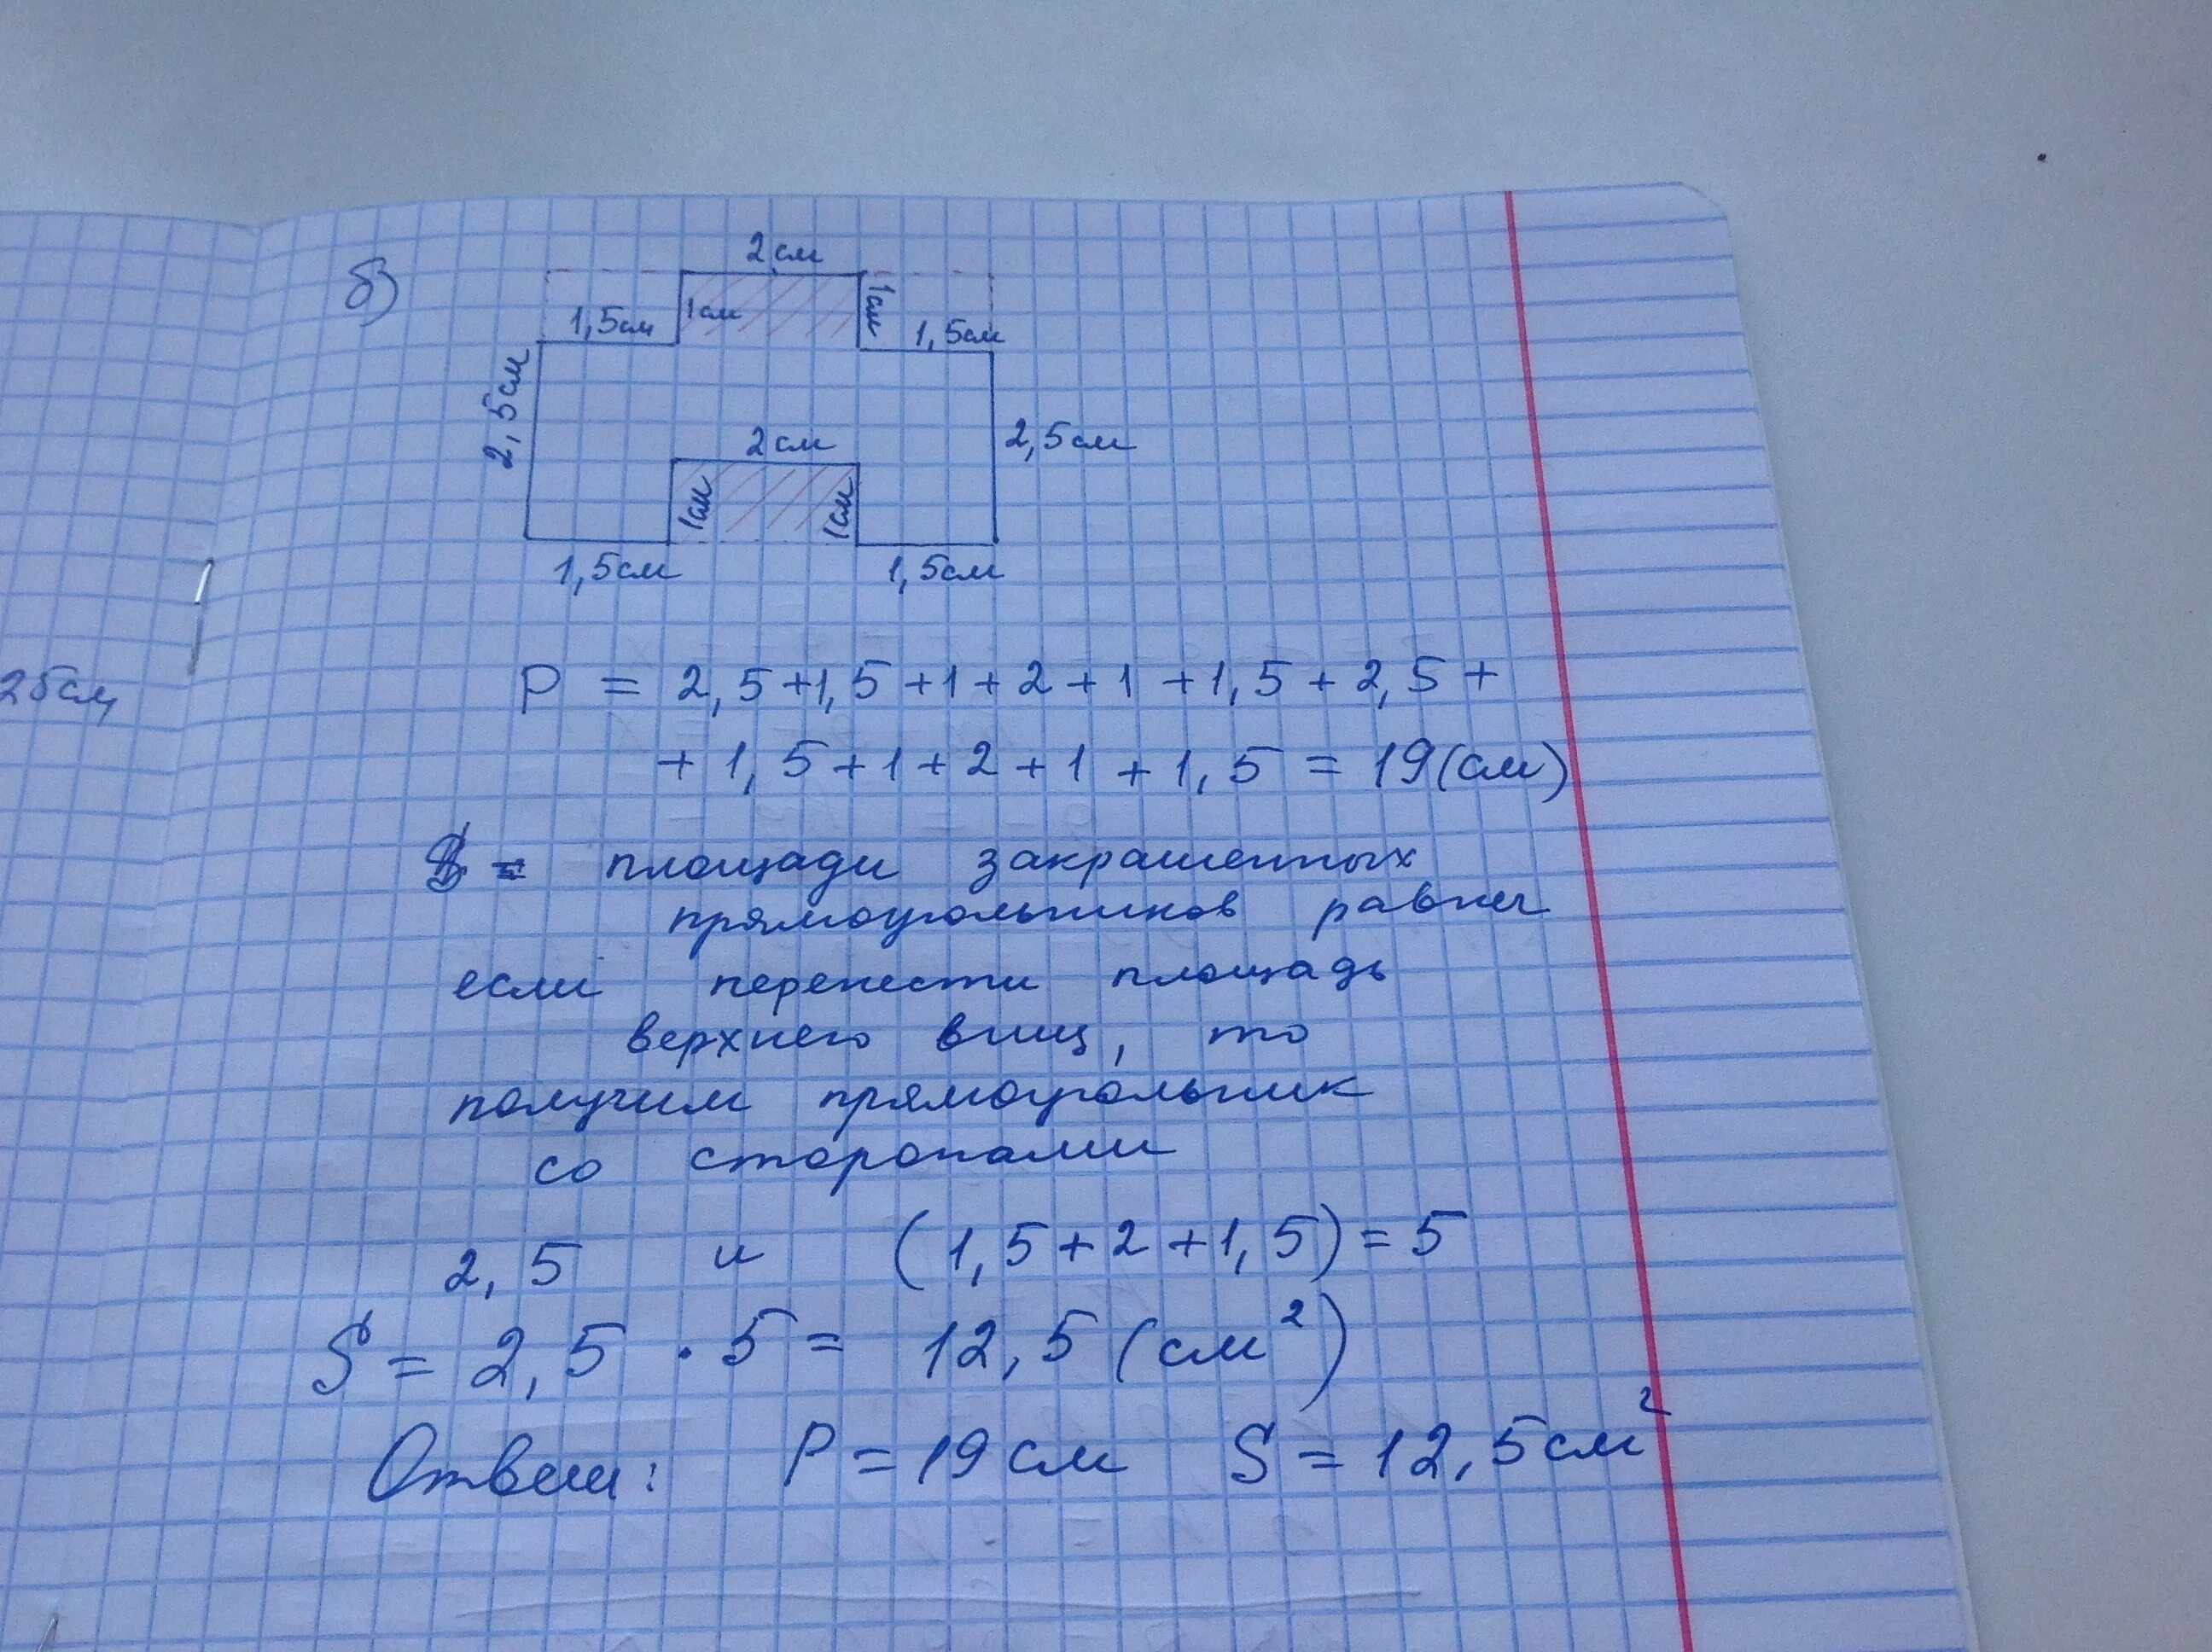 б)
2 см
1,5см
1см
1см
1,5см
2,5см
2 см
2,5см
1см
1см
1,5см
1,5см
25см
P = 2,5+1,5+1+2+1+1,5+2,5+
+1,5+1+2+1+1,5 = 19(см)
S = площади закрашенных
прямоугольников равны
если перенести площадь
верхнего вниз, то
получим прямоугольник
со сторонами
2,5 и (1,5+2+1,5)=5
S = 2,5 · 5 = 12,5 (см²)
Ответ: P = 19 см S = 12,5 см²